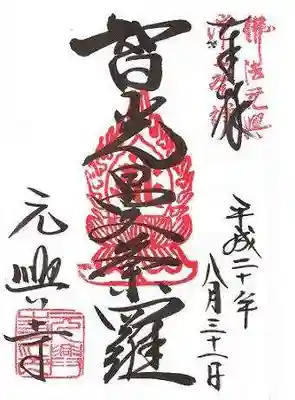 佛法元興
奉拝
平成二十年
八月三十一日
智光曼荼羅
元興寺